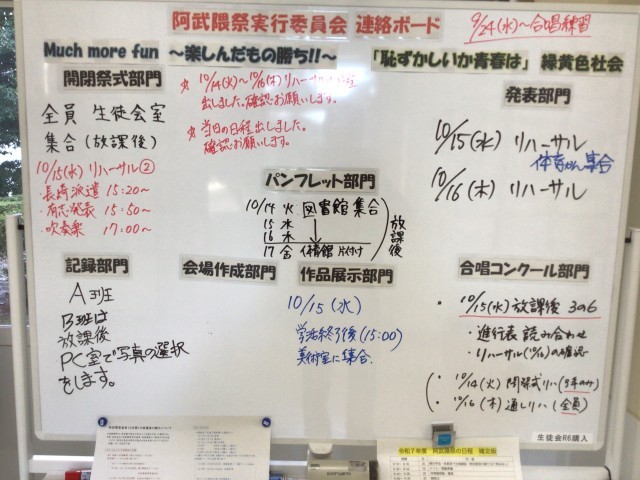 阿武隈祭実行委員会 連絡ボード
9/24(水)～合唱練習
Much more fun ～楽しんだもの勝ち!!～
「恥ずかしいか青春は」 緑黄色社会
開閉祭式部門
全員 生徒会室
集合(放課後)
10/15(水) リハーサル②
・長崎派遣 15:20～
・有志発表 15:50～
・吹奏楽 17:00～
☆ 10/14(火)～10/16(木)リハーサル
出しました。確認お願いします。
☆ 当日の日程出しました。
確認お願いします。
発表部門
10/15(水) リハーサル
体育かん集合
10/16(木) リハーサル
パンフレット部門
10/14 火 図書館 集合
15 水
16 木
17 金 片付け
放課後
記録部門
A班
B班は
放課後
PC室で写真の選択
をします。
会場作成部門
作品展示部門
10/15(水)
学活終了後(15:00)
美術室に集合.
合唱コンクール部門
・10/15(水)放課後 3の6
・進行表 読み合わせ
・リハーサル(10/16)の確認
・10/14(火) 開祭式リハ
・10/16(木) 通しリハ(全員)
生徒会R6購入
令和7年度 阿武隈祭の日程 確定版